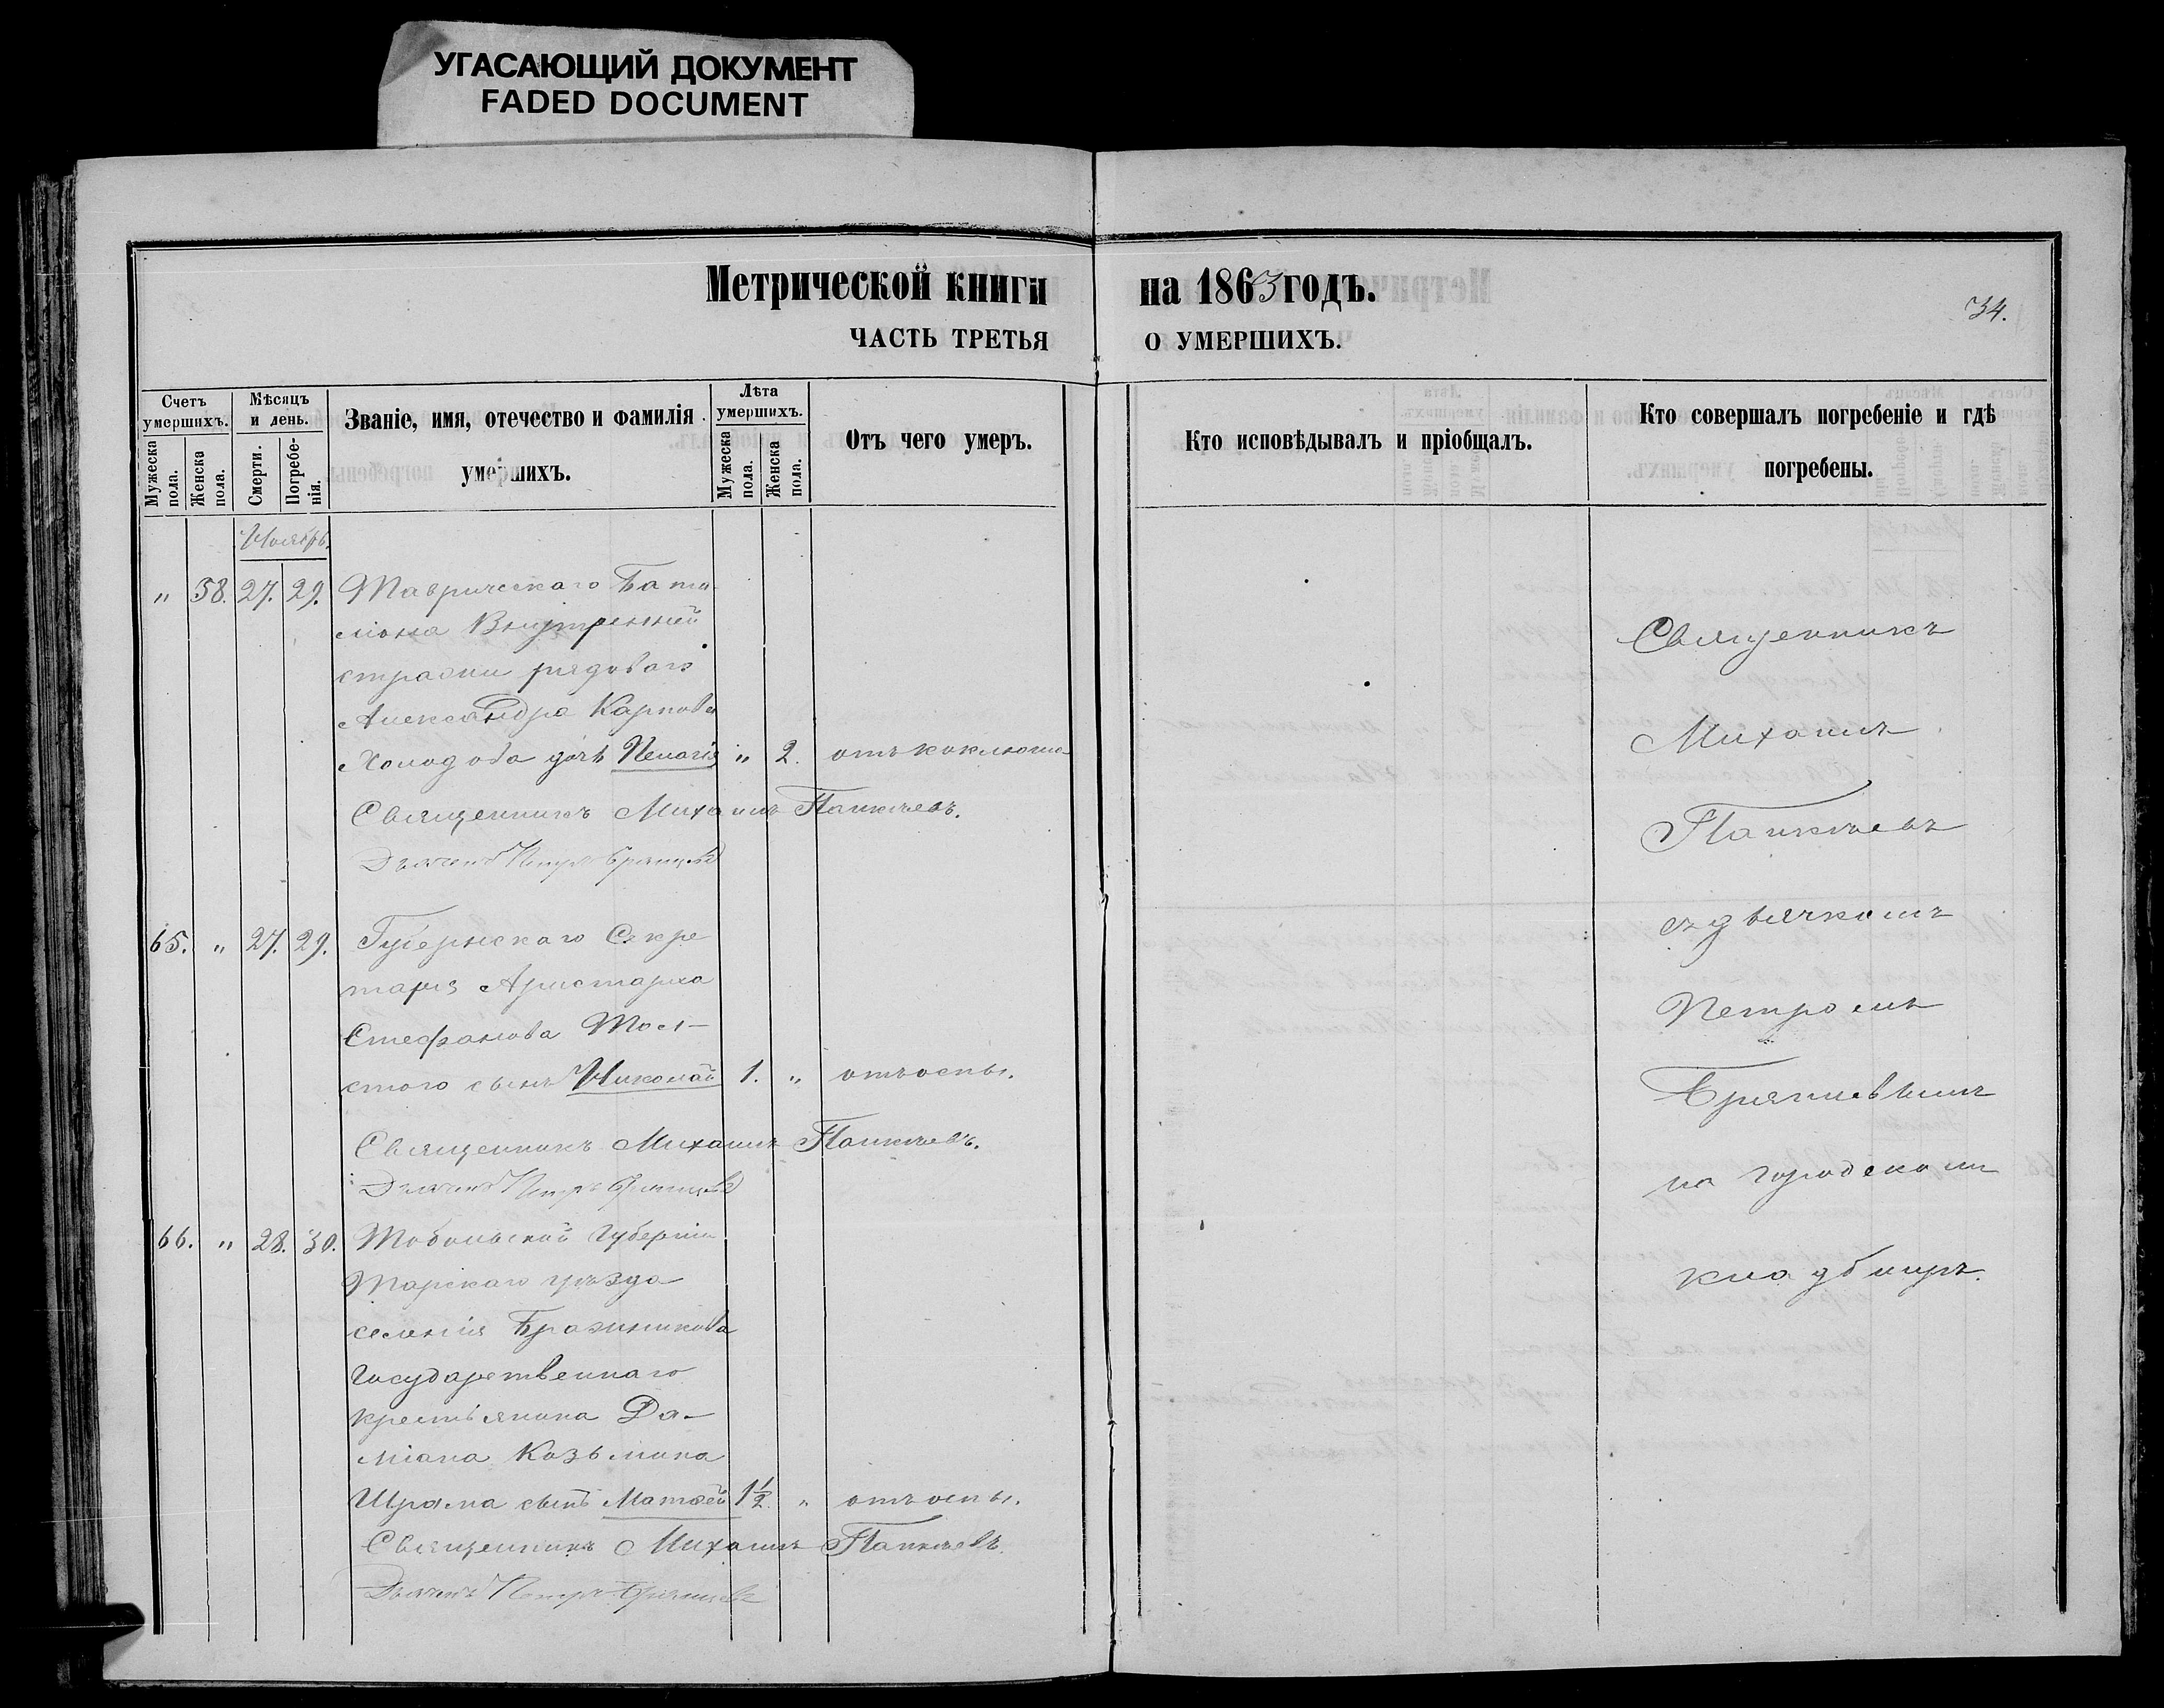 УГАСАЮЩИЙ ДОКУМЕНТ
FADED DOCUMENT
Метрической книги на 1863 годъ.
34.
ЧАСТЬ ТРЕТЬЯ О УМЕРШИХЪ.
Счетъ умершихъ.
Мужеска пола.
Женска пола.
Мѣсяцъ и день.
Смерти.
Погребенія.
Званіе, имя, отечество и фамилія умершихъ.
Лѣта умершихъ.
Мужеска пола.
Женска пола.
Отъ чего умеръ.
Кто исповѣдывалъ и пріобщалъ.
Кто совершалъ погребеніе и гдѣ погребены.
Ноябрь.
" 58. 27. 29. Таврическаго Бата-
ліона Внутренней
стражи рядоваго
Александра Карпова
Холодова дочь Пелагія " 2. отъ коклюша
Священникъ Михаилъ Папкчевъ.
Дьячекъ Петръ Брянцевъ
65. " 27. 29. Губернскаго Секре
таря Аристарха
Стефанова Тол-
стого сынъ Николай 1. " отъ оспы.
Священникъ Михаилъ
Дьячекъ Петръ Брянцевъ
66. " 28. 30. Тобольской Губерніи
Тарскаго уѣзда
селенія Бражникова
Государственнаго
крестьянина Да-
міана Козьмина
Шрама сынъ Матѳей 1½. " отъ оспы.
Священникъ Михаилъ
Дьячекъ Петръ Брянцевъ
Священникъ
Михаилъ
съ дьячкомъ
Петромъ
Брянцевымъ
на городскомъ
кладбищѣ.